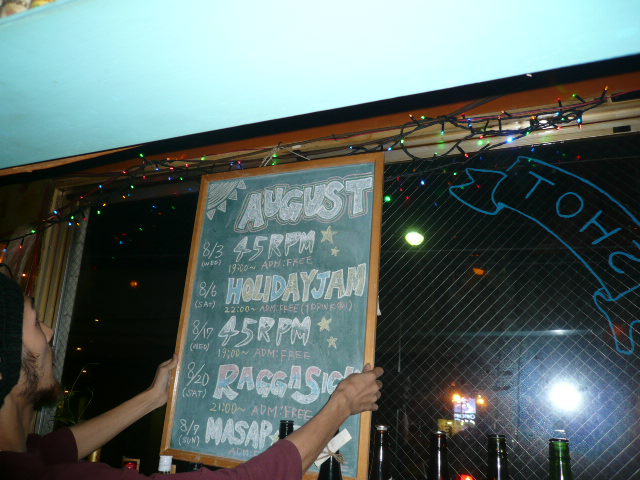 AUGUST
8/3 (WED) 45RPM
19:00~ ADM:FREE
8/6 (SAT) HOLIDAYJAM
22:00~ ADM:FREE (1DRINK
8/17 (WED) 45RPM
19:00~ ADM:FREE
8/20 (SAT)
21:00~ ADM:FREE
(SUN)
TOHC